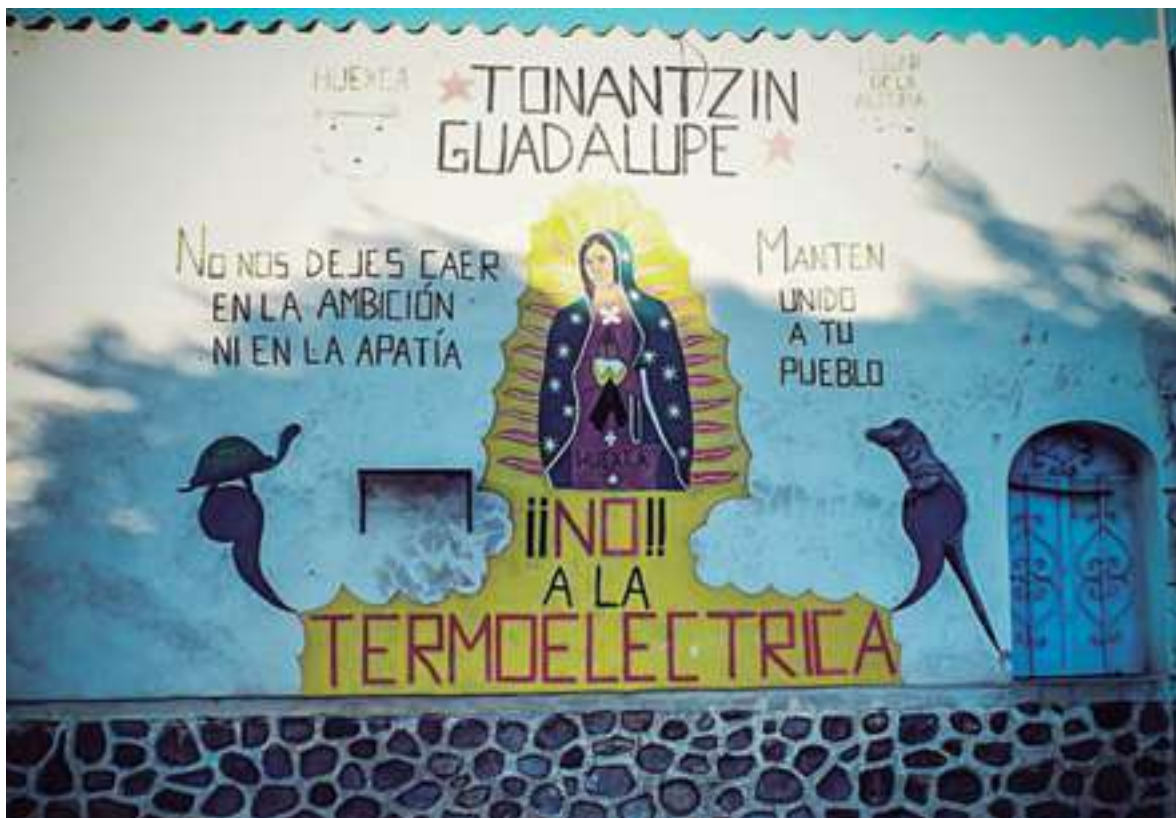 HUEXCA
TONANTZIN
GUADALUPE
LUGAR
DE LA
ALEGRIA
NO NOS DEJES CAER
EN LA AMBICIÓN
NI EN LA APATÍA
MANTEN
UNIDO
A TU
PUEBLO
HUEXCA
¡¡NO!!
A LA
TERMOELECTRICA